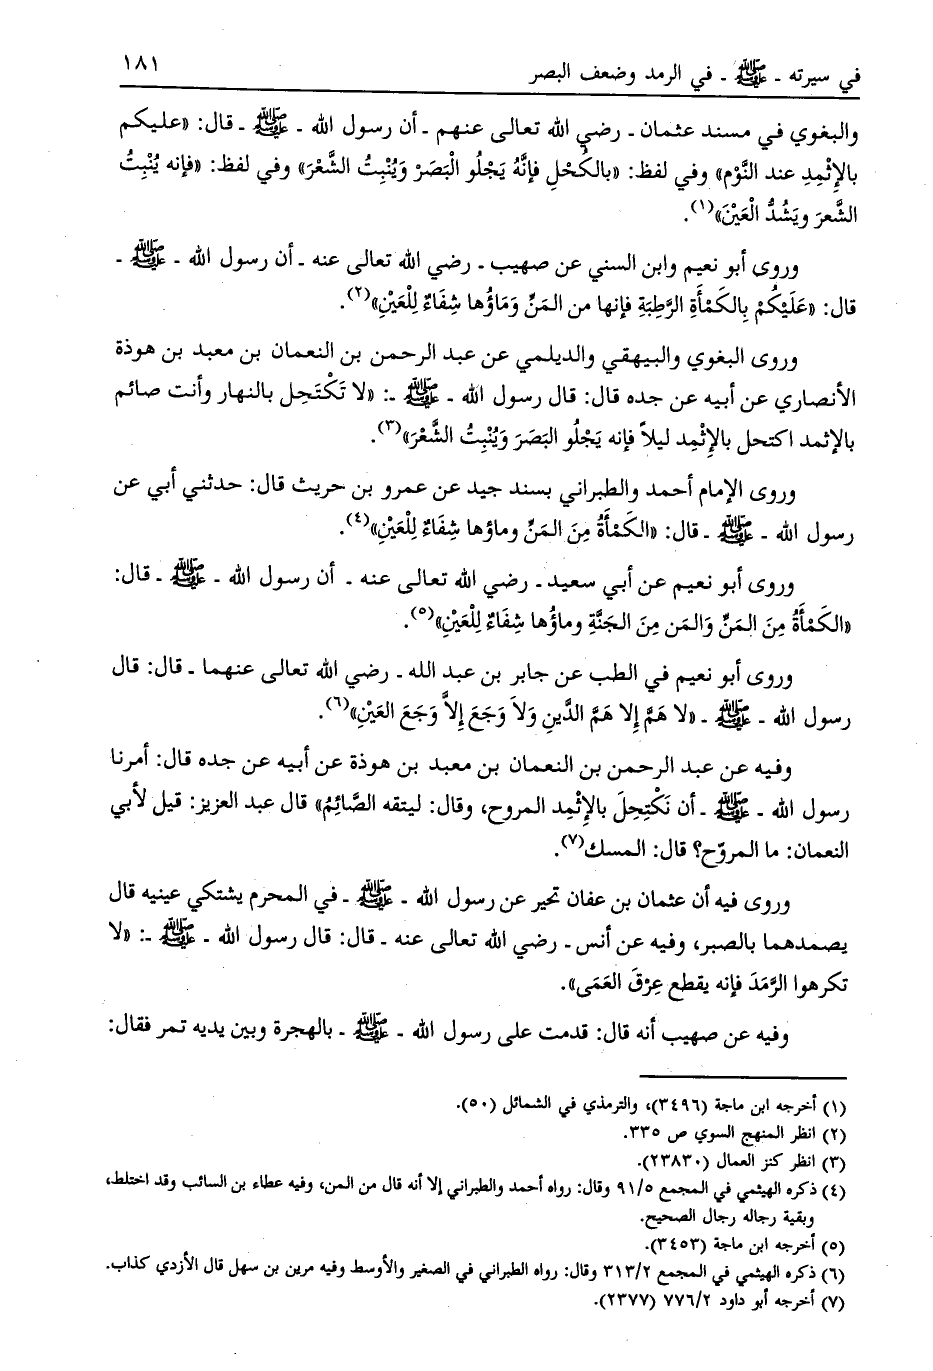 في سيرته ـ ﷺ ـ في الرمد وضعف البصر ١٨١
والبغوي في مسند عثمان ـ رضي الله تعالى عنهم ـ أن رسول الله ـ ﷺ ـ قال: «عليكم
بالإِثْمِدِ عند النَّوْم» وفي لفظ: «بالكُحْلِ فإنَّهُ يَجْلُو الْبَصَرْ وَيُنْبِتُ الشَّعْرَ» وفي لفظ: «فإنه يُنْبِتُ
الشَّعرَ ويَشُدُّ الْعَيْنَ»(١).
وروى أبو نعيم وابن السني عن صهيب ـ رضي الله تعالى عنه ـ أن رسول الله ـ ﷺ ـ
قال: «عَلَيْكُمْ بِالكَمْأَةِ الرَّطِبَةِ فإنها من المَنِّ وَمَاؤُها شِفَاءٌ لِلْعَيْنِ»(٢).
وروى البغوي والبيهقي والديلمي عن عبد الرحمن بن النعمان بن معبد بن هوذة
الأنصاري عن أبيه عن جده قال: قال رسول الله ـ ﷺ ـ: «لا تَكْتَحِل بالنهار وأنت صائم
بالإثمد اكتحل بالإِثْمِد ليلاً فإنه يَجْلُو البَصَرَ وَيُنْبِتُ الشَّعْرَ»(٣).
وروى الإمام أحمد والطبراني بسند جيد عن عمرو بن حريث قال: حدثني أبي عن
رسول الله ـ ﷺ ـ قال: «الكَمْأَةُ مِنَ المَنِّ وماؤها شِفَاءٌ لِلْعَيْنِ»(٤).
وروى أبو نعيم عن أبي سعيد ـ رضي الله تعالى عنه ـ أن رسول الله ـ ﷺ ـ قال:
«الكَمْأَةُ مِنَ المَنِّ وَالمَن مِنَ الجَنَّةِ وماؤُها شِفَاءٌ لِلْعَيْنِ»(٥).
وروى أبو نعيم في الطب عن جابر بن عبد الله ـ رضي الله تعالى عنهما ـ قال: قال
رسول الله ـ ﷺ ـ «لا هَمَّ إلا هَمَّ الدَّينِ وَلاَ وَجَعَ إلاَّ وَجَعَ العَيْنِ»(٦).
وفيه عن عبد الرحمن بن النعمان بن معبد بن هوذة عن أبيه عن جده قال: أمرنا
رسول الله ـ ﷺ ـ أن نَكْتِحِلَ بالإِثْمِد المروح، وقال: ليتقه الصَّائِمُ» قال عبد العزيز: قيل لأبي
النعمان: ما المروّح؟ قال: المسك(٧).
وروى فيه أن عثمان بن عفان تحير عن رسول الله ـ ﷺ ـ في المحرم يشتكي عينيه قال
يصمدهما بالصبر، وفيه عن أنس ـ رضي الله تعالى عنه ـ قال: قال رسول الله ـ ﷺ ـ: «لا
تكرهوا الرَّمَدَ فإنه يقطع عِرْقَ العَمَى».
وفيه عن صهيب أنه قال: قدمت على رسول الله ـ ﷺ ـ بالهجرة وبين يديه تمر فقال:
(١) أخرجه ابن ماجة (٣٤٩٦)، والترمذي في الشمائل (٥٠).
(٢) انظر المنهج السوي ص ٣٣٥.
(٣) انظر كنز العمال (٢٣٨٣٠).
(٤) ذكره الهيثمي في المجمع ٩١/٥ وقال: رواه أحمد والطبراني إلا أنه قال من المن، وفيه عطاء بن السائب وقد اختلط،
وبقية رجاله رجال الصحيح.
(٥) أخرجه ابن ماجة (٣٤٥٣).
(٦) ذكره الهيثمي في المجمع ٣١٣/٢ وقال: رواه الطبراني في الصغير والأوسط وفيه مرين بن سهل قال الأزدي كذاب.
(٧) أخرجه أبو داود ٧٧٦/٢ (٢٣٧٧).